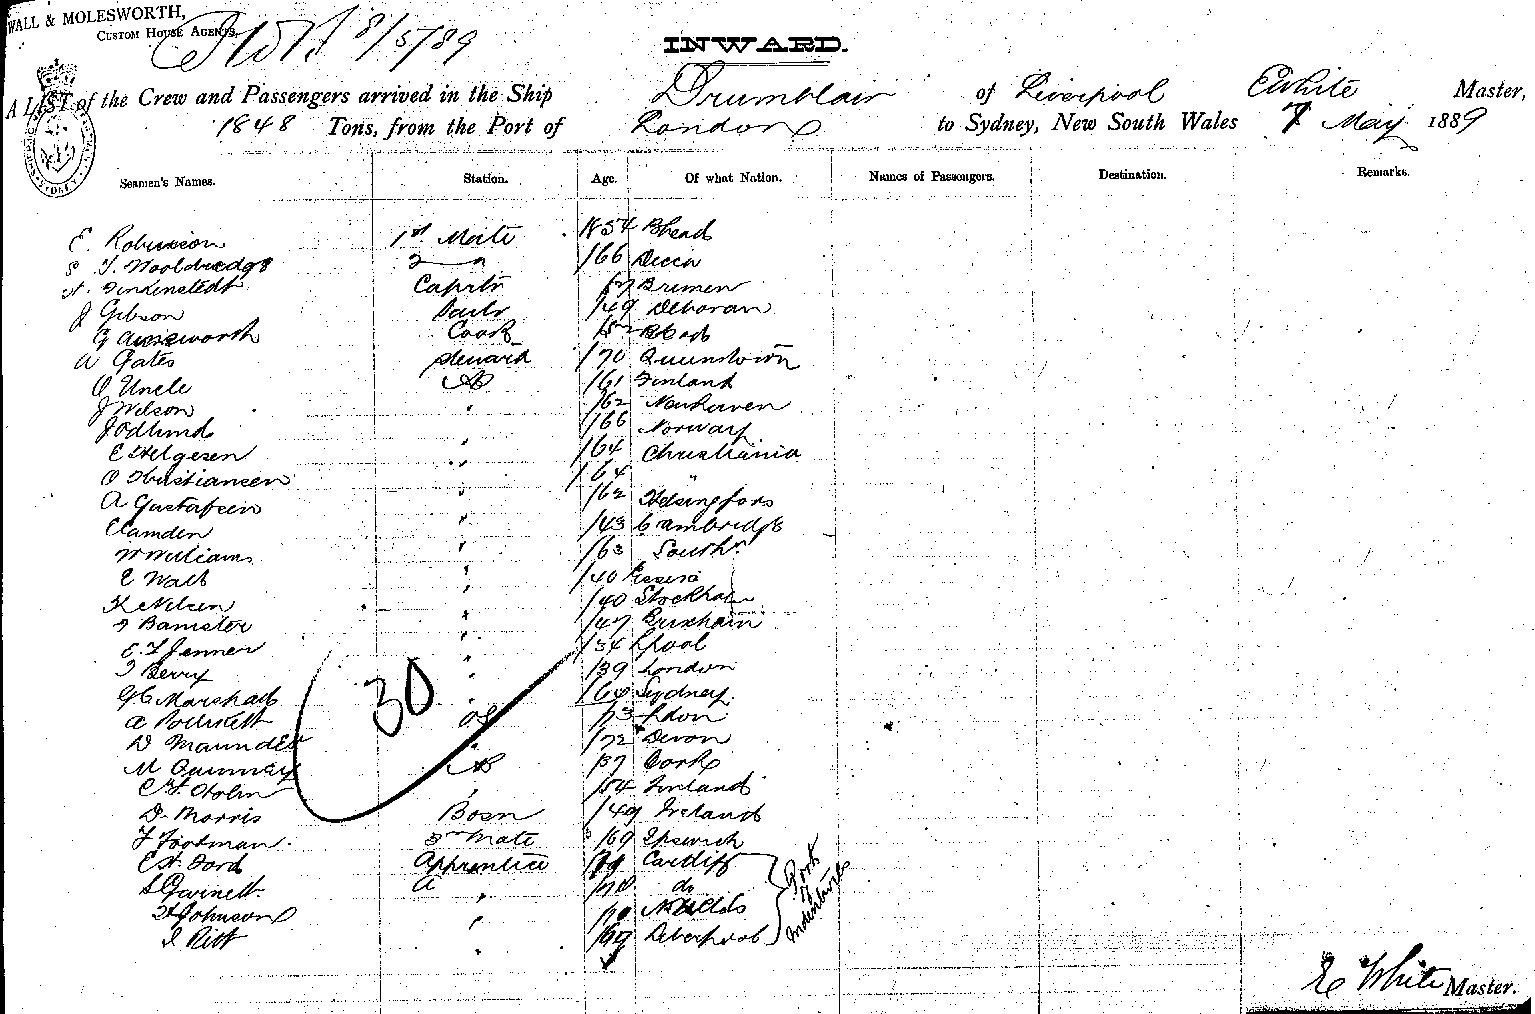 WALL & MOLESWORTH,
CUSTOM HOUSE AGENTS,
8/5/89
INWARD.
A LIST of the Crew and Passengers arrived in the Ship Drumblair of Liverpool E White Master,
1848 Tons, from the Port of London to Sydney, New South Wales 7 May 1889
Seamen's Names. Station. Age. Of what Nation. Names of Passengers. Destination. Remarks.
E. Robinson 1st Mate 1854 Bhead
S T. Wooldredge 2 " /66 Decca
Bremen
J Gibson /49
G Ainsworth Cook /52
W Gates Steward /70 Queenstown
O Uncle AB /61 Finland
J Wilson " /62 Newhaven
J Odlund " /66 Norway
C Helgesen " /64 Christiania
O Christiansen " /64 "
A Gustafsen " /62 Helsingfors
Camden " /43 Cambridge
W Williams " /63 South
E Wall " /40
K Nilsen " /40 Stockholm
Bamister " /47 Brixham
C F Jenner " /34 Lpool
J Berry " /39 London
G C Marshall " /64 Sydney
30
OS /73 Ldon
D Maunder " /72 Devon
M AB /37 Cork
C H Holm " /54 Finland
D. Morris Bosn /49 Ireland
F Footman. 3rd Mate /69 Ipswich
E H. Ford Apprentice Cardiff
S Garnett. " do
H Johnson "
J Pitt " Liverpool
Indentures
E White Master.